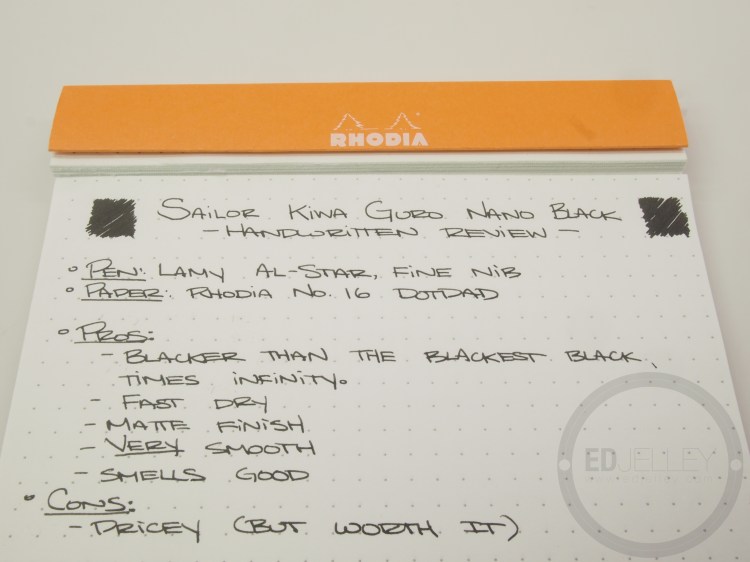 RHODIA
SAILOR KIWA GURO NANO BLACK
- HANDWRITTEN REVIEW -
° PEN: LAMY AL-STAR, FINE NIB
° PAPER: RHODIA No. 16 DOTPAD
° PROS:
- BLACKER THAN THE BLACKEST BLACK,
TIMES INFINITY.
- FAST DRY
- MATTE FINISH
- VERY SMOOTH
- SMELLS GOOD
° CONS:
- PRICEY (BUT WORTH IT)
EDJELLEY